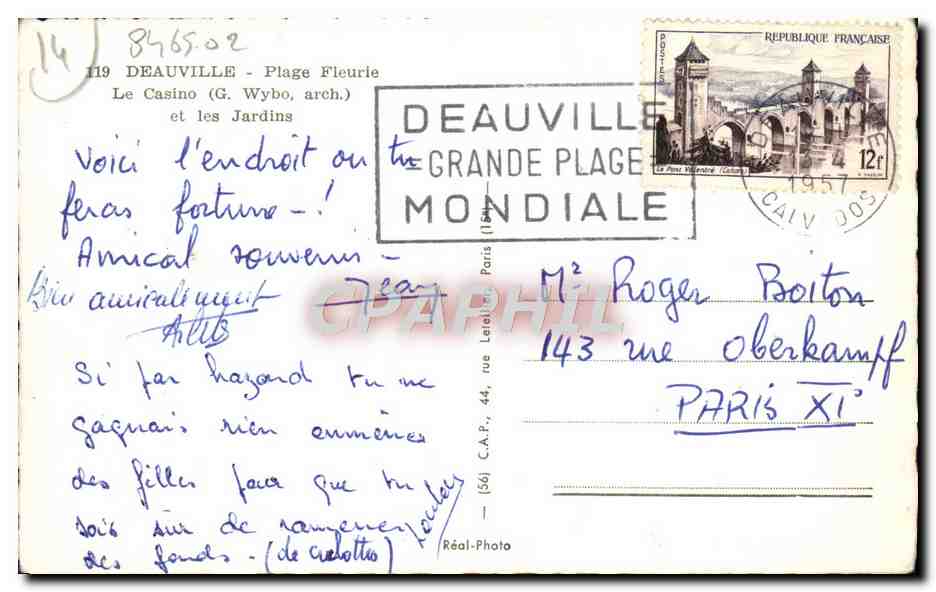 14
8465.02
119 DEAUVILLE - Plage Fleurie
Le Casino (G. Wybo, arch.)
et les Jardins
Voici l'endroit ou tu
feras fortune - !
Amical souvenir -
Bien amicalement
Jean
Si par hazard tu ne
gagnais rien emmènes
des filles pour que tu
sois sûr de ramener
des fonds - (de culottes)
DEAUVILLE
GRANDE PLAGE
MONDIALE
POSTES
REPUBLIQUE FRANÇAISE
Le Pont Valentré (Cahors)
12F
1957
CALVADOS
Mr Roger Boiton
143 rue Oberkampf
PARIS XI°
(56) C.A.P., 44, rue Letellier, Paris (15e)
Réal-Photo
CPAPHIL